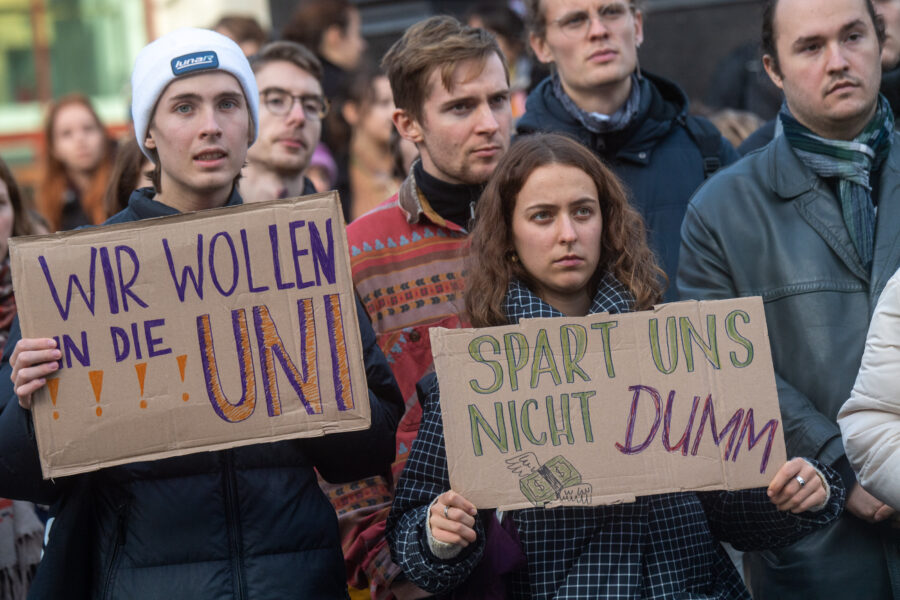 lunar
WIR WOLLEN
IN DIE UNI
! ! ! !
SPART UNS
NICHT DUMM